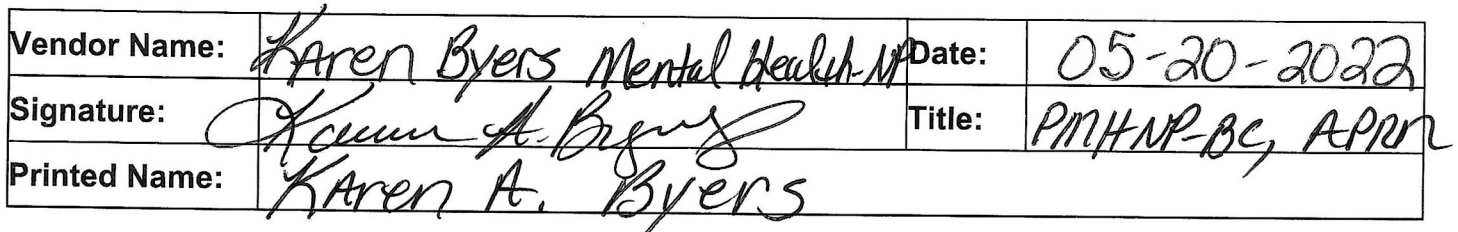 Vendor Name: Karen Byers Mental Health-NP Date: 05-20-2022
Signature: Karen A. Byers Title: PMHNP-BC, APRN
Printed Name: Karen A. Byers